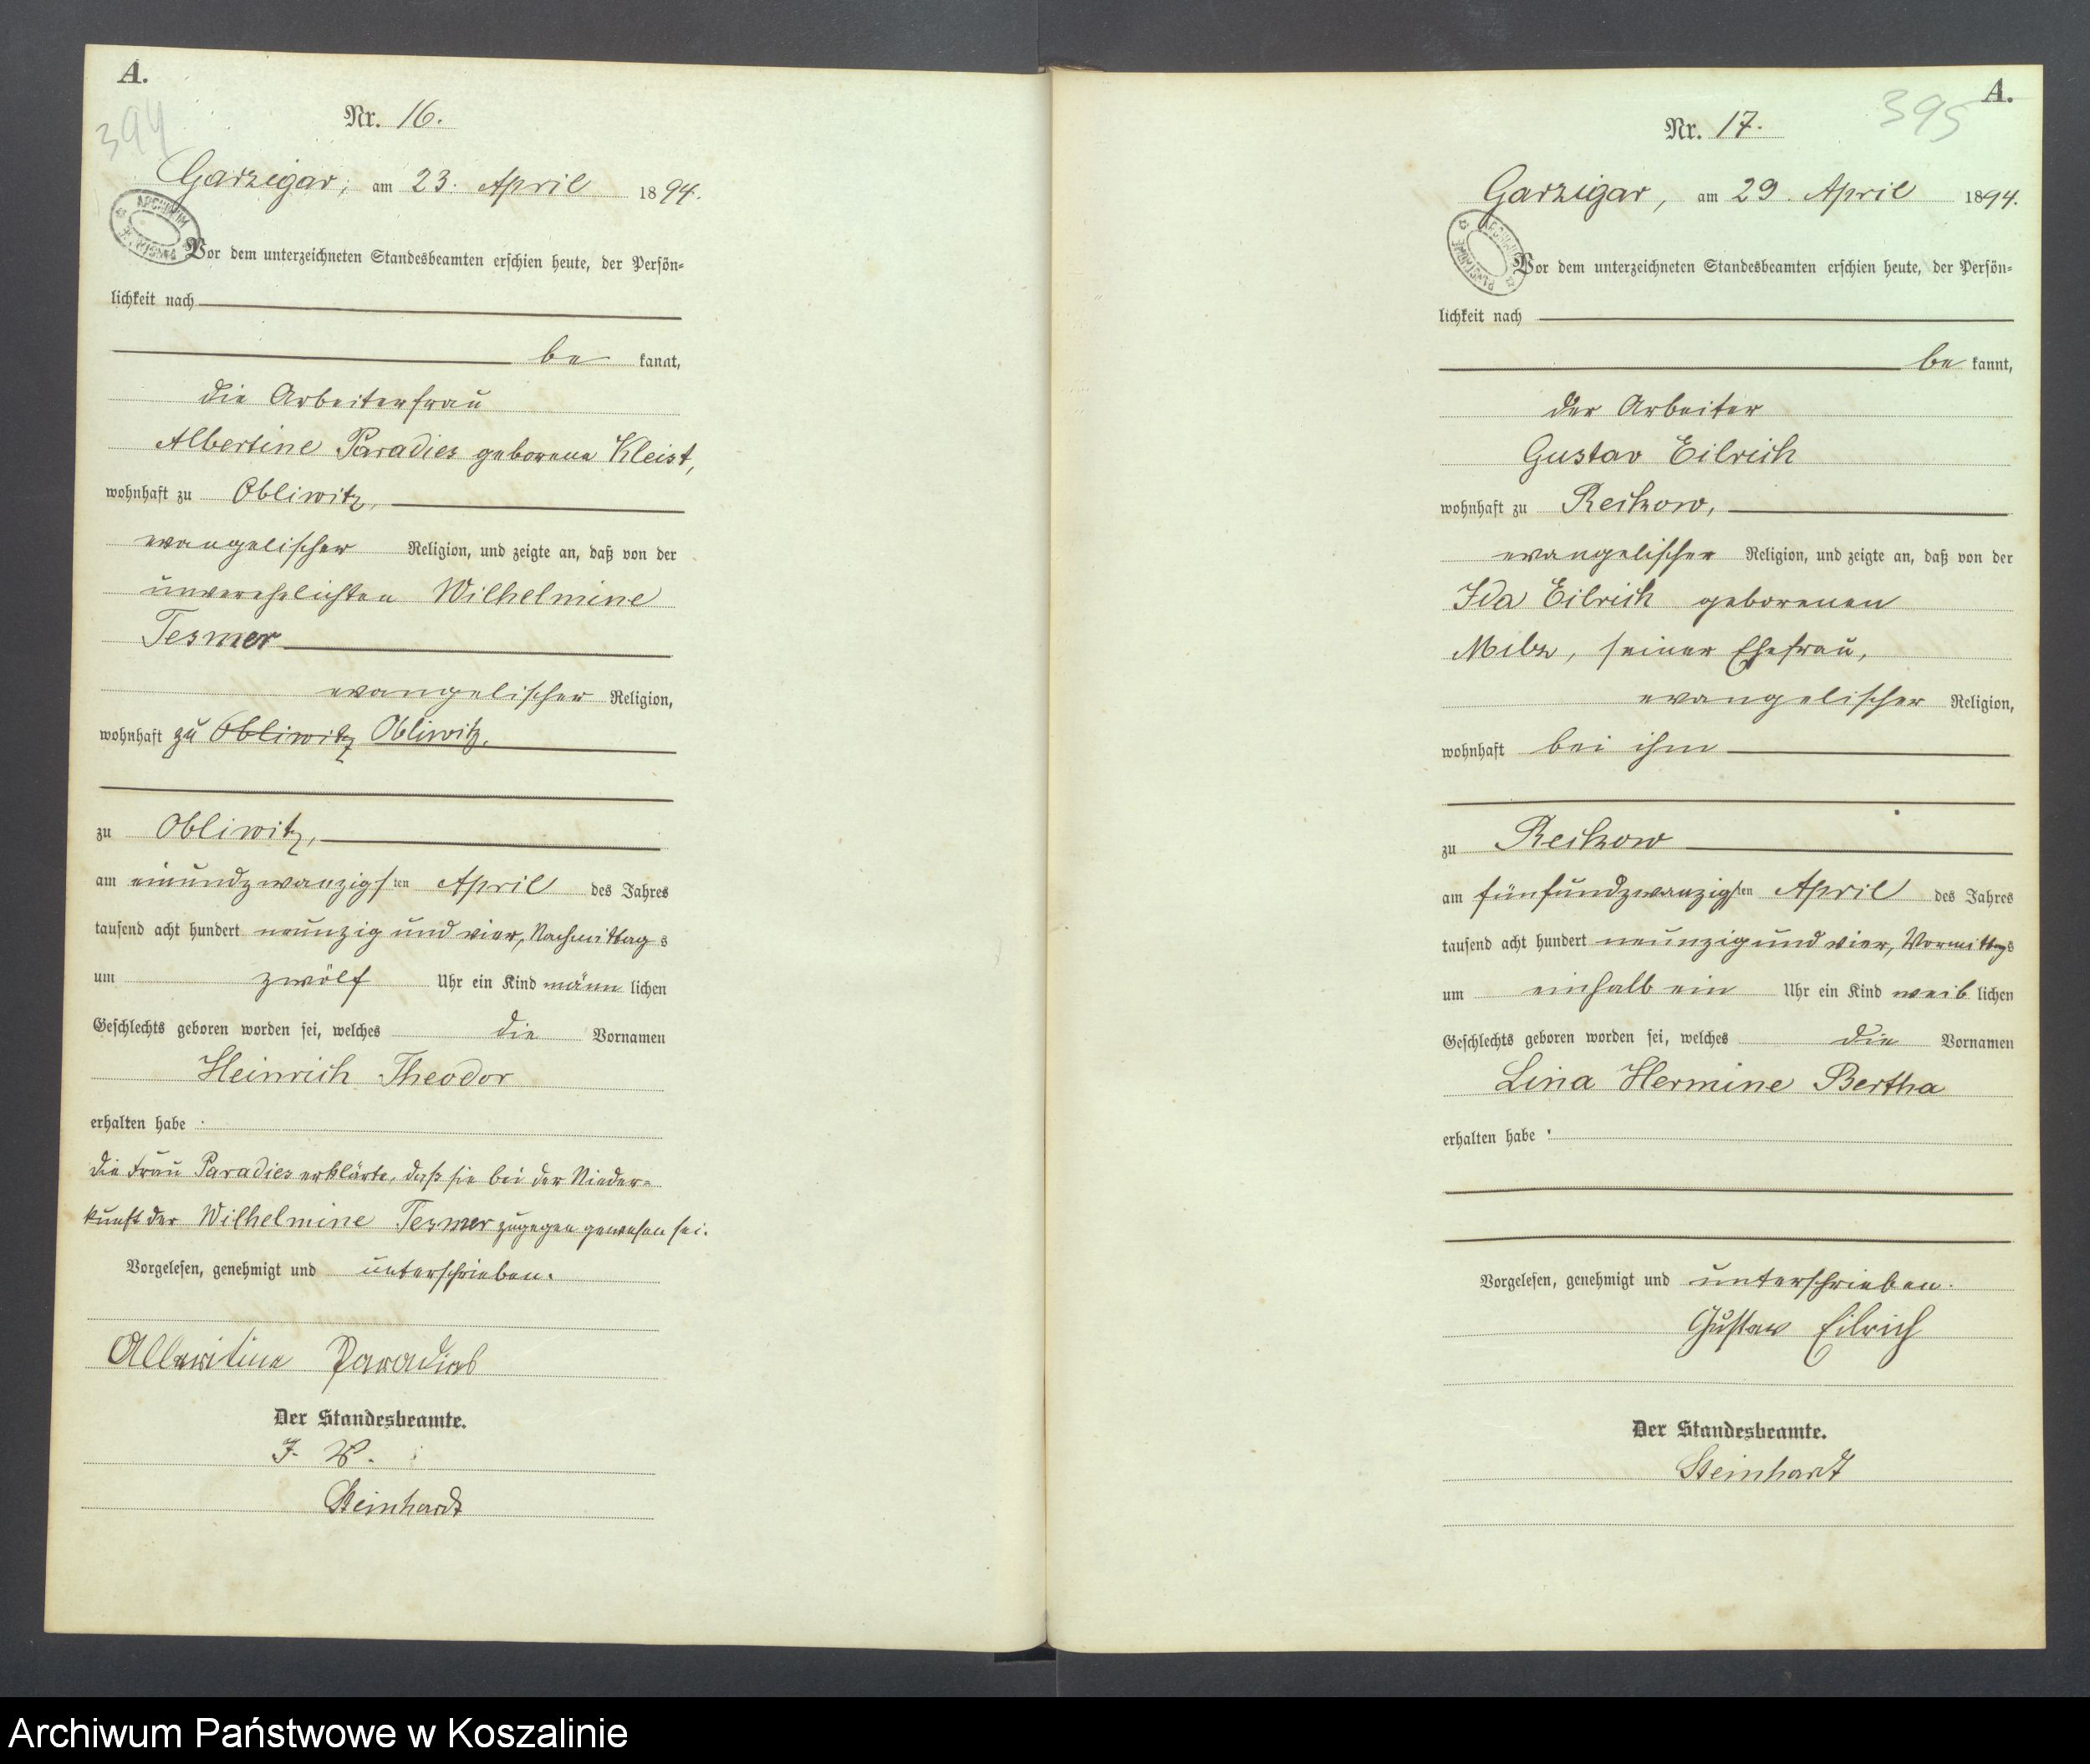 A.
394
Nr. 16.
Garzigar, am 23. April 1894.
Vor dem unterzeichneten Standesbeamten erschien heute, der Persön-
lichkeit nach
be kannt,
die Arbeiterfrau
Albertine Paradies geborene Kleist,
wohnhaft zu Obliwitz,
evangelischer Religion, und zeigte an, daß von der
unverehelichten Wilhelmine
Tesmer
evangelischer Religion,
wohnhaft zu Obliwitz Obliwitz,
zu Obliwitz,
am einundzwanzigsten April des Jahres
tausend acht hundert neunzig und vier, Nachmittags
um zwölf Uhr ein Kind männlichen
Geschlechts geboren worden sei, welches die Vornamen
Heinrich Theodor
erhalten habe.
Die Frau Paradies erklärte, daß sie bei der Nieder-
kunft der Wilhelmine Tesmer zugegen gewesen sei.
Vorgelesen, genehmigt und unterschrieben.
Paradies
Der Standesbeamte.
J. V.
Steinhardt
A.
395
Nr. 17.
Garzigar, am 29. April 1894.
Vor dem unterzeichneten Standesbeamten erschien heute, der Persön-
lichkeit nach
be kannt,
der Arbeiter
Gustav Eilrich
wohnhaft zu Reckow,
evangelischer Religion, und zeigte an, daß von der
Ida Eilrich geborenen
seiner Ehefrau,
evangelischer Religion,
wohnhaft bei ihm
zu Reckow
am fünfundzwanzigsten April des Jahres
tausend acht hundert neunzig und vier, Vormittags
um einhalb ein Uhr ein Kind weiblichen
Geschlechts geboren worden sei, welches die Vornamen
Lina Hermine Bertha
erhalten habe.
Vorgelesen, genehmigt und unterschrieben.
Gustav Eilrich
Der Standesbeamte.
Steinhardt
Archiwum Państwowe w Koszalinie